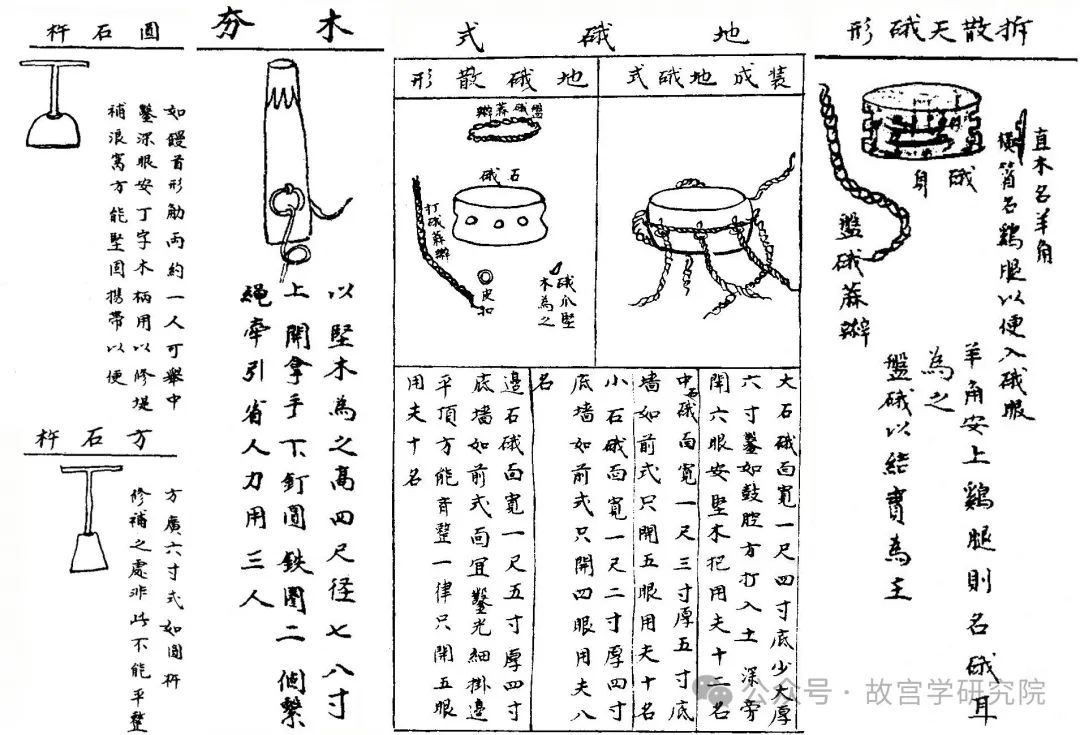 拆散天硪形
直木名羊角
橫筲名鷄腿以便入硪眼
硪身
盤硪蔴辮
羊角安上鷄腿則名硪耳
為之
盤硪以結實為主
地硪式
裝成地硪式
地硪散形
盤硪蔴辮
硪石
打硪蔴辮
皮扣
硪爪堅
木為之
大石硪面寬一尺四寸底少大厚
六寸鑿如鼓腔方打入土深旁
開六眼安堅木把用夫十二名
中石硪面寬一尺三寸厚五寸底
墻如前式只開五眼用夫十名
小石硪面寬一尺二寸厚四寸
底墻如前式只開四眼用夫八
名
邊石硪面寬一尺五寸厚四寸
底墻如前式面宜鑿光細掛邊
平頂方能齊整一律只開五眼
用夫十名
木夯
以堅木為之高四尺径七八寸
上開拿手下釘圓鉄圈二個繫
繩牽引省人力用三人
圓石杵
如饅首形觔兩約一人可舉中
鑿深眼安丁字木柄用以修堤
補浪窩方能堅固携帶以便
方石杵
方廣六寸式如圓杵
修補之處非此不能平整
公众号·故宫学研究院